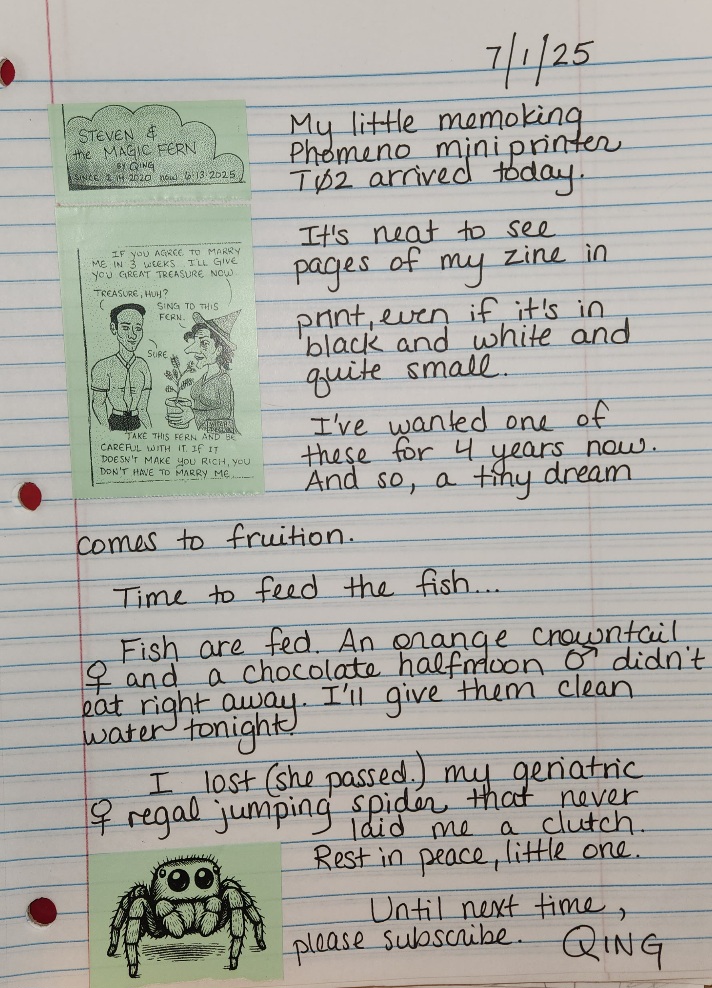 7/1/25
STEVEN &
the MAGIC FERN
BY QING
SINCE 2.14.2020 now 6.13.2025
IF YOU AGREE TO MARRY
ME IN 3 WEEKS... I'LL GIVE
YOU GREAT TREASURE NOW.
TREASURE, HUH?
SING TO THIS
FERN.
SURE
TAKE THIS FERN AND BE
CAREFUL WITH IT. IF IT
DOESN'T MAKE YOU RICH, YOU
DON'T HAVE TO MARRY ME...
My little memoking
Phomeno miniprinter
TØ2 arrived today.
It's neat to see
pages of my zine in
print, even if it's in
black and white and
quite small.
I've wanted one of
these for 4 years now.
And so, a tiny dream
comes to fruition.
Time to feed the fish...
Fish are fed. An orange crowntail
♀ and a chocolate halfmoon ♂ didn't
eat right away. I'll give them clean
water tonight.
I lost (she passed.) my geriatric
♀ regal jumping spider that never
laid me a clutch.
Rest in peace, little one.
Until next time,
please subscribe. QING